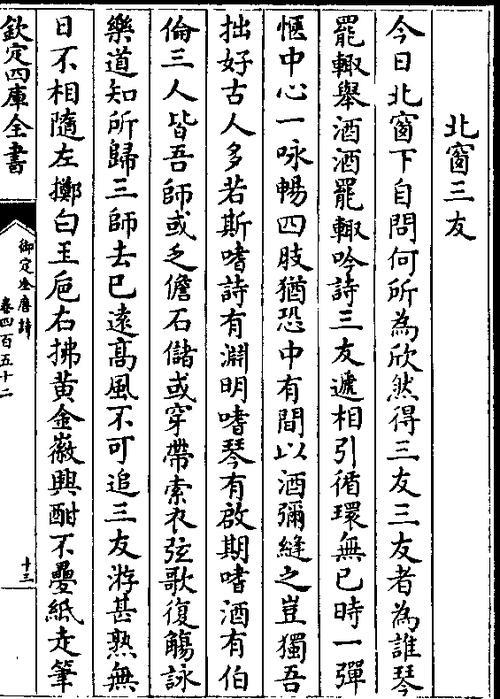 北窗三友
今日北窗下自問何所為欣然得三友三友者為誰琴
罷輙舉酒酒罷輙吟詩三友遞相引循環無已時一彈
愜中心一咏暢四肢猶恐中有間以酒彌縫之豈獨吾
拙好古人多若斯嗜詩有淵明嗜琴有啟期嗜酒有伯
倫三人皆吾師或乏儋石儲或穿帶索衣弦歌復觴詠
樂道知所歸三師去已遠髙風不可追三友游甚熟無
日不相隨左擲白玉巵右拂黄金徽興酣不疊紙走筆
欽定四庫全書
御定全唐詩
卷四百五十二
十三